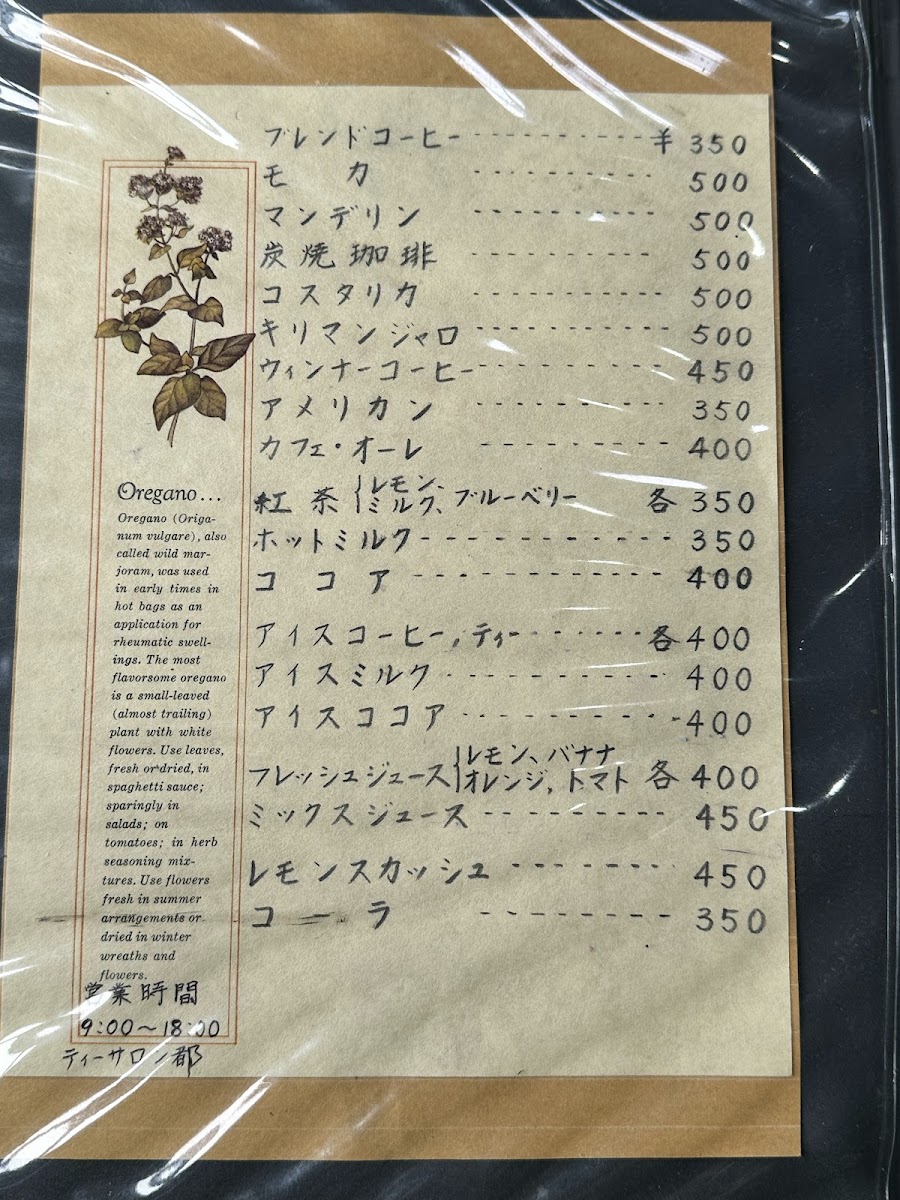 ブレンドコーヒー ------------ ¥ 350
モ カ ---------- 500
マンデリン ---------- 500
炭焼珈琲 ---------- 500
コスタリカ ---------- 500
キリマンジャロ ---------- 500
ウィンナーコーヒー ---------- 450
アメリカン ---------- 350
カフェ・オーレ ---------- 400
紅 茶 {レモン、
ミルク、ブルーベリー 各 350
ホットミルク ------------- 350
コ コ ア ------------- 400
アイスコーヒー,ティー ------- 各 400
アイスミルク ----------- 400
アイスココア ----------- 400
フレッシュジュース {レモン、バナナ
オレンジ、トマト 各 400
ミックスジュース --------- 450
レモンスカッシュ -------- 450
コ ー ラ --------- 350
Oregano...
Oregano (Origa-
num vulgare), also
called wild mar-
joram, was used
in early times in
hot bags as an
application for
rheumatic swell-
ings. The most
flavorsome oregano
is a small-leaved
(almost trailing)
plant with white
flowers. Use leaves,
fresh or dried, in
spaghetti sauce;
sparingly in
salads; on
tomatoes; in herb
seasoning mix-
tures. Use flowers
fresh in summer
arrangements or
dried in winter
wreaths and
flowers.
営業時間
9:00〜18:00
ティーサロン都